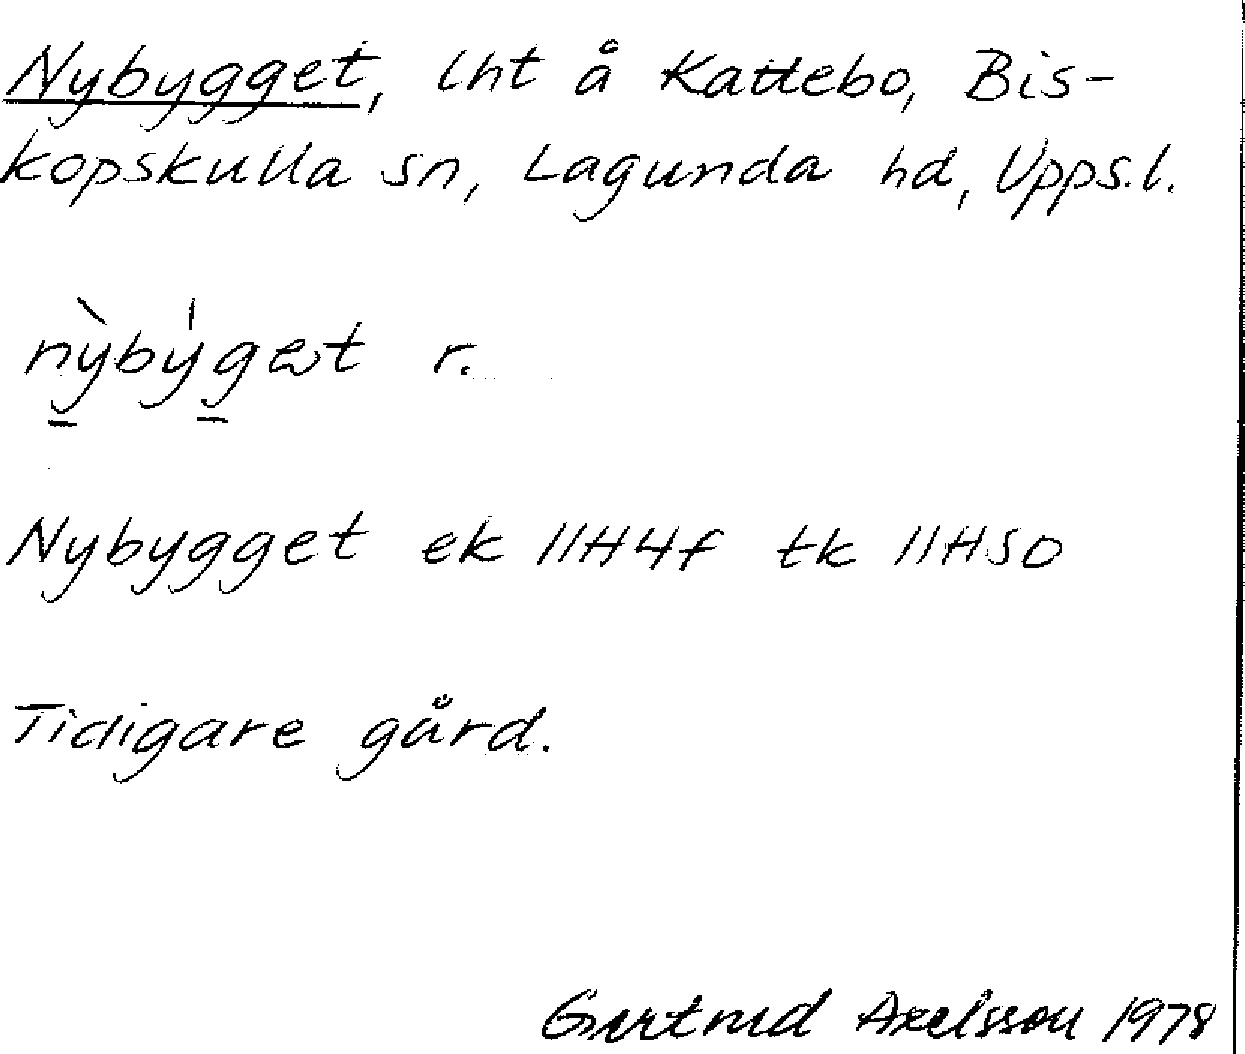 Nybygget, lht å Kattebo, Bis-
kopskulla sn, Lagunda hd, Upps.l.
nỳ̠býg̠ət r.
Nybygget ek 11H4f tk 11H50
Tidigare gård.
Gertrud Axelsson 1978